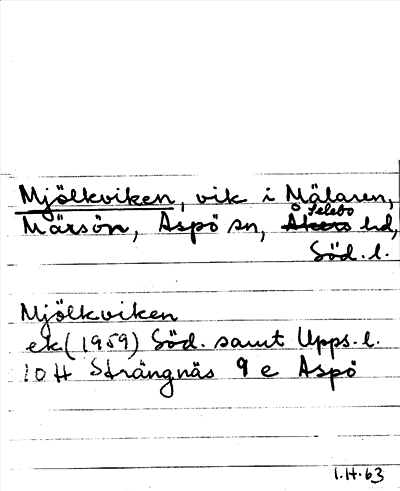 Mjölkviken, vik i Mälaren,
Selebo
Märsön, Aspö sn, Åkers hd,
Söd. l.
Mjölkviken
ek (1959) Söd. samt Upps. l.
10 H Strängnäs 9 e Aspö
1.H.63